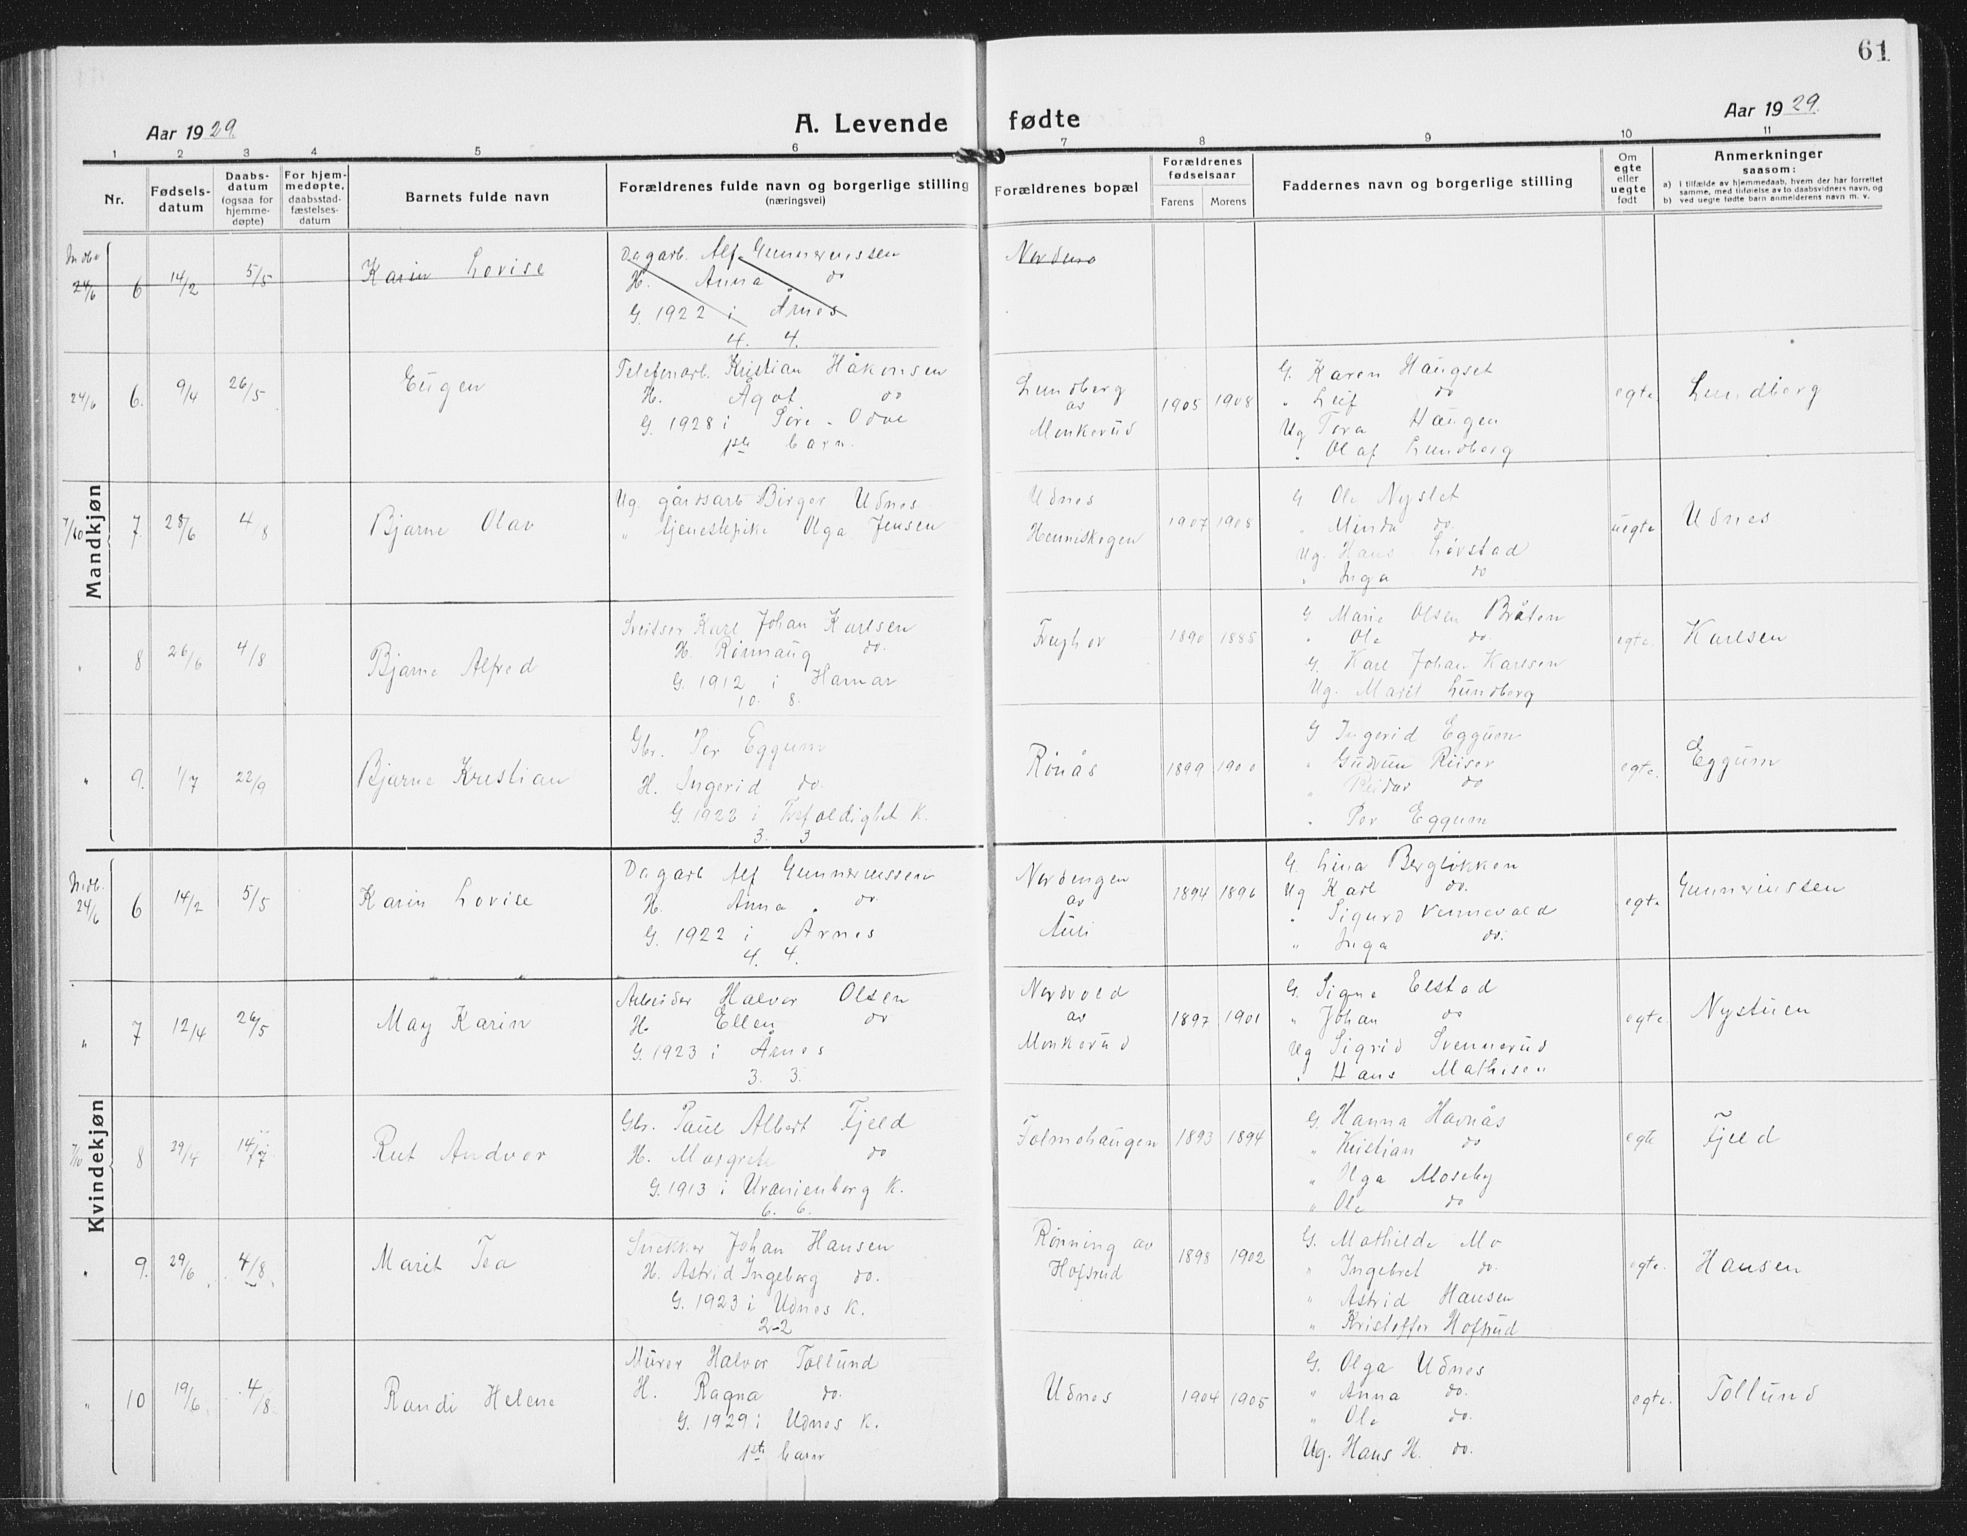 61
Aar 1929.
A. Levende fødte
Aar 1929.
1 2 3 4 5 6 7 8 9 10 11
Nr.
Fødsels-
datum
Daabs-
datum
(ogsaa for
hjemme-
døpte)
For hjem-
medøpte,
daabsstad-
fæstelses-
datum
Barnets fulde navn
Forældrenes fulde navn og borgerlige stilling
(næringsvei)
Forældrenes bopæl
Forældrenes
fødselsaar
Farens Morens
Faddernes navn og borgerlig stilling
Om
egte
eller
uegte
født
Anmerkninger
saasom:
a) I tilfælde av hjemmedaab, hvem der har forrettet
samme, med tilføielse av to daabsvidners navn, og
b) ved uegte fødte barn anmelderens navn m. v.
Mandkjøn
24/6 6 14/2 5/5 Karin Lovise
Dagarb. Alf Gunnerussen
H. Anna do
G. 1922 i Årnes
4. 4.
24/6 6. 9/4 26/5 Eugen
Telefonarb. Kristian Håkonsen
H. Ågot do
G. 1928 i Søre-Odal
1ste barn.
Lundberg
av
Monkerud
1905 1908
G. Karen Haugset
" Leif do
Ug Tora Haugen
" Olaf Lundberg
egte
Lundberg
7/10 7. 28/6 4/8 Bjarne Olav
Ug gårdsarb Birger Udnes
" tjenestepike Olga Jensen
Udnes
Henniskogen
1907 1908
G Ole Nyslet
" Minda do.
Ug. Hans Løvstad
" Inga do
uegte
Udnes
" 8 26/6 4/8 Bjarne Alfred
Sveitser Karl Johan Karlsen
H. Rønnaug do.
G. 1912 i Hamar
10. 8.
Frughov
1890 1885
G Marie Olsen Bråten
" Ole do.
G. Karl Johan Karlsen
Ug. Marit Lundberg
egte.
Karlsen
" 9. 1/7 22/9 Bjarne Kristian
Gbr. Per Eggum
H. Ingerid do.
G. 1922 i Trefoldighet K.
3. 3
Rønås
1899 1900
G Ingerid Eggum
" Gudrun Riiser
" Reidar do
" Per Eggum
egte.
Eggum
Kvindekjøn
24/6 6 14/2 5/5 Karin Lovise
Dagarb Alf Gunnerussen
H. Anna do.
G. 1922 i Årnes
4. 4.
Nordengen
av
Auli
1894 1896
G. Lina Bergløkken
Ug Karl do.
" Sigurd Vennevold
" Inga do.
egte
Gunnerussen
" 7 12/4 26/5 May Karin
Arbeider Halvor Olsen
H. Ellen do
G. 1923 i Årnes
3. 3.
Nordvold
av
Monkerud
1897 1901
G. Signe Elstad
" Johan do
Ug Sigrid Svennerud
" Hans Mathisen
egte
Nystuen
7/10 8 29/4 14/7 Rut Andvor
Gbr. Paul Albert Fjeld
H. Margrete do
G. 1913 i Uranienborg K.
6. 6.
Tolmohaugen
1893 1894
G. Hanna Havnås
" Kristian do
" Olga Moseby
" Ole do
egte
Fjeld
" 9. 29/6 4/8 Marit Tea
Snekker Johan Hansen
H. Astrid Ingeborg do.
G. 1923 i Udnes K.
2-2
Rønning av
Hofsrud
1898 1902
G. Mathilde Mo
" Ingebret do.
" Astrid Hansen
" Kristoffer Hofsrud
egte.
Hansen
" 10 19/6 4/8 Randi Helene
Murer Halvor Tollund
H. Ragna do.
G. 1929 i Udnes K.
1ste barn
Udnes
1904 1905
G. Olga Udnes
" Anna do.
" Ole do.
Ug. Hans H. do.
egte.
Tollund